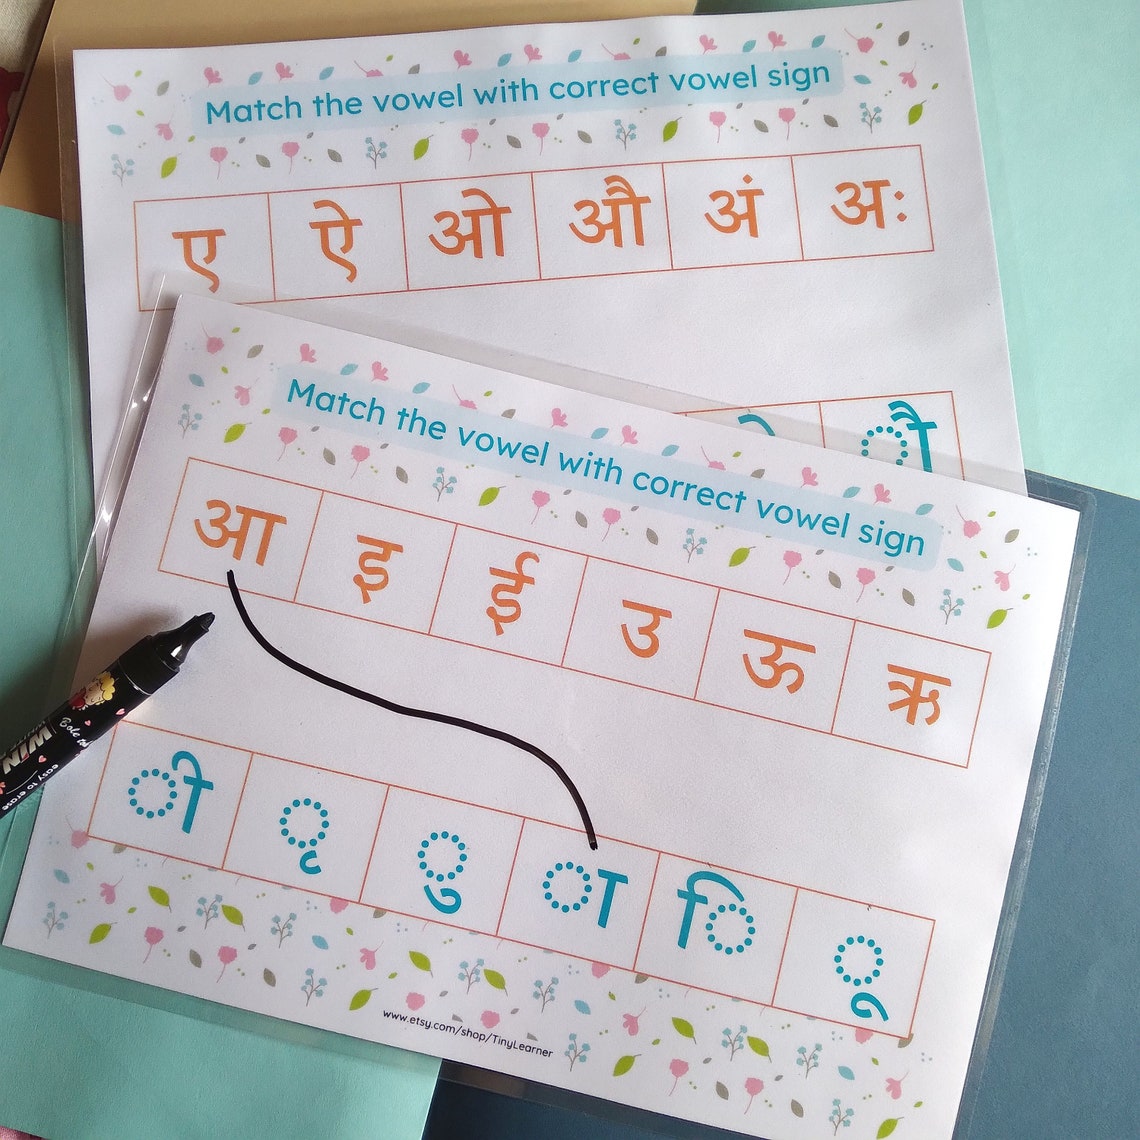 Match the vowel with correct vowel sign
ए ऐ ओ औ अं अः
ौ
Match the vowel with correct vowel sign
आ इ ई उ ऊ ऋ
ी ृ ु ा ि ू
www.etsy.com/shop/TinyLearner
WIN
easy to erase